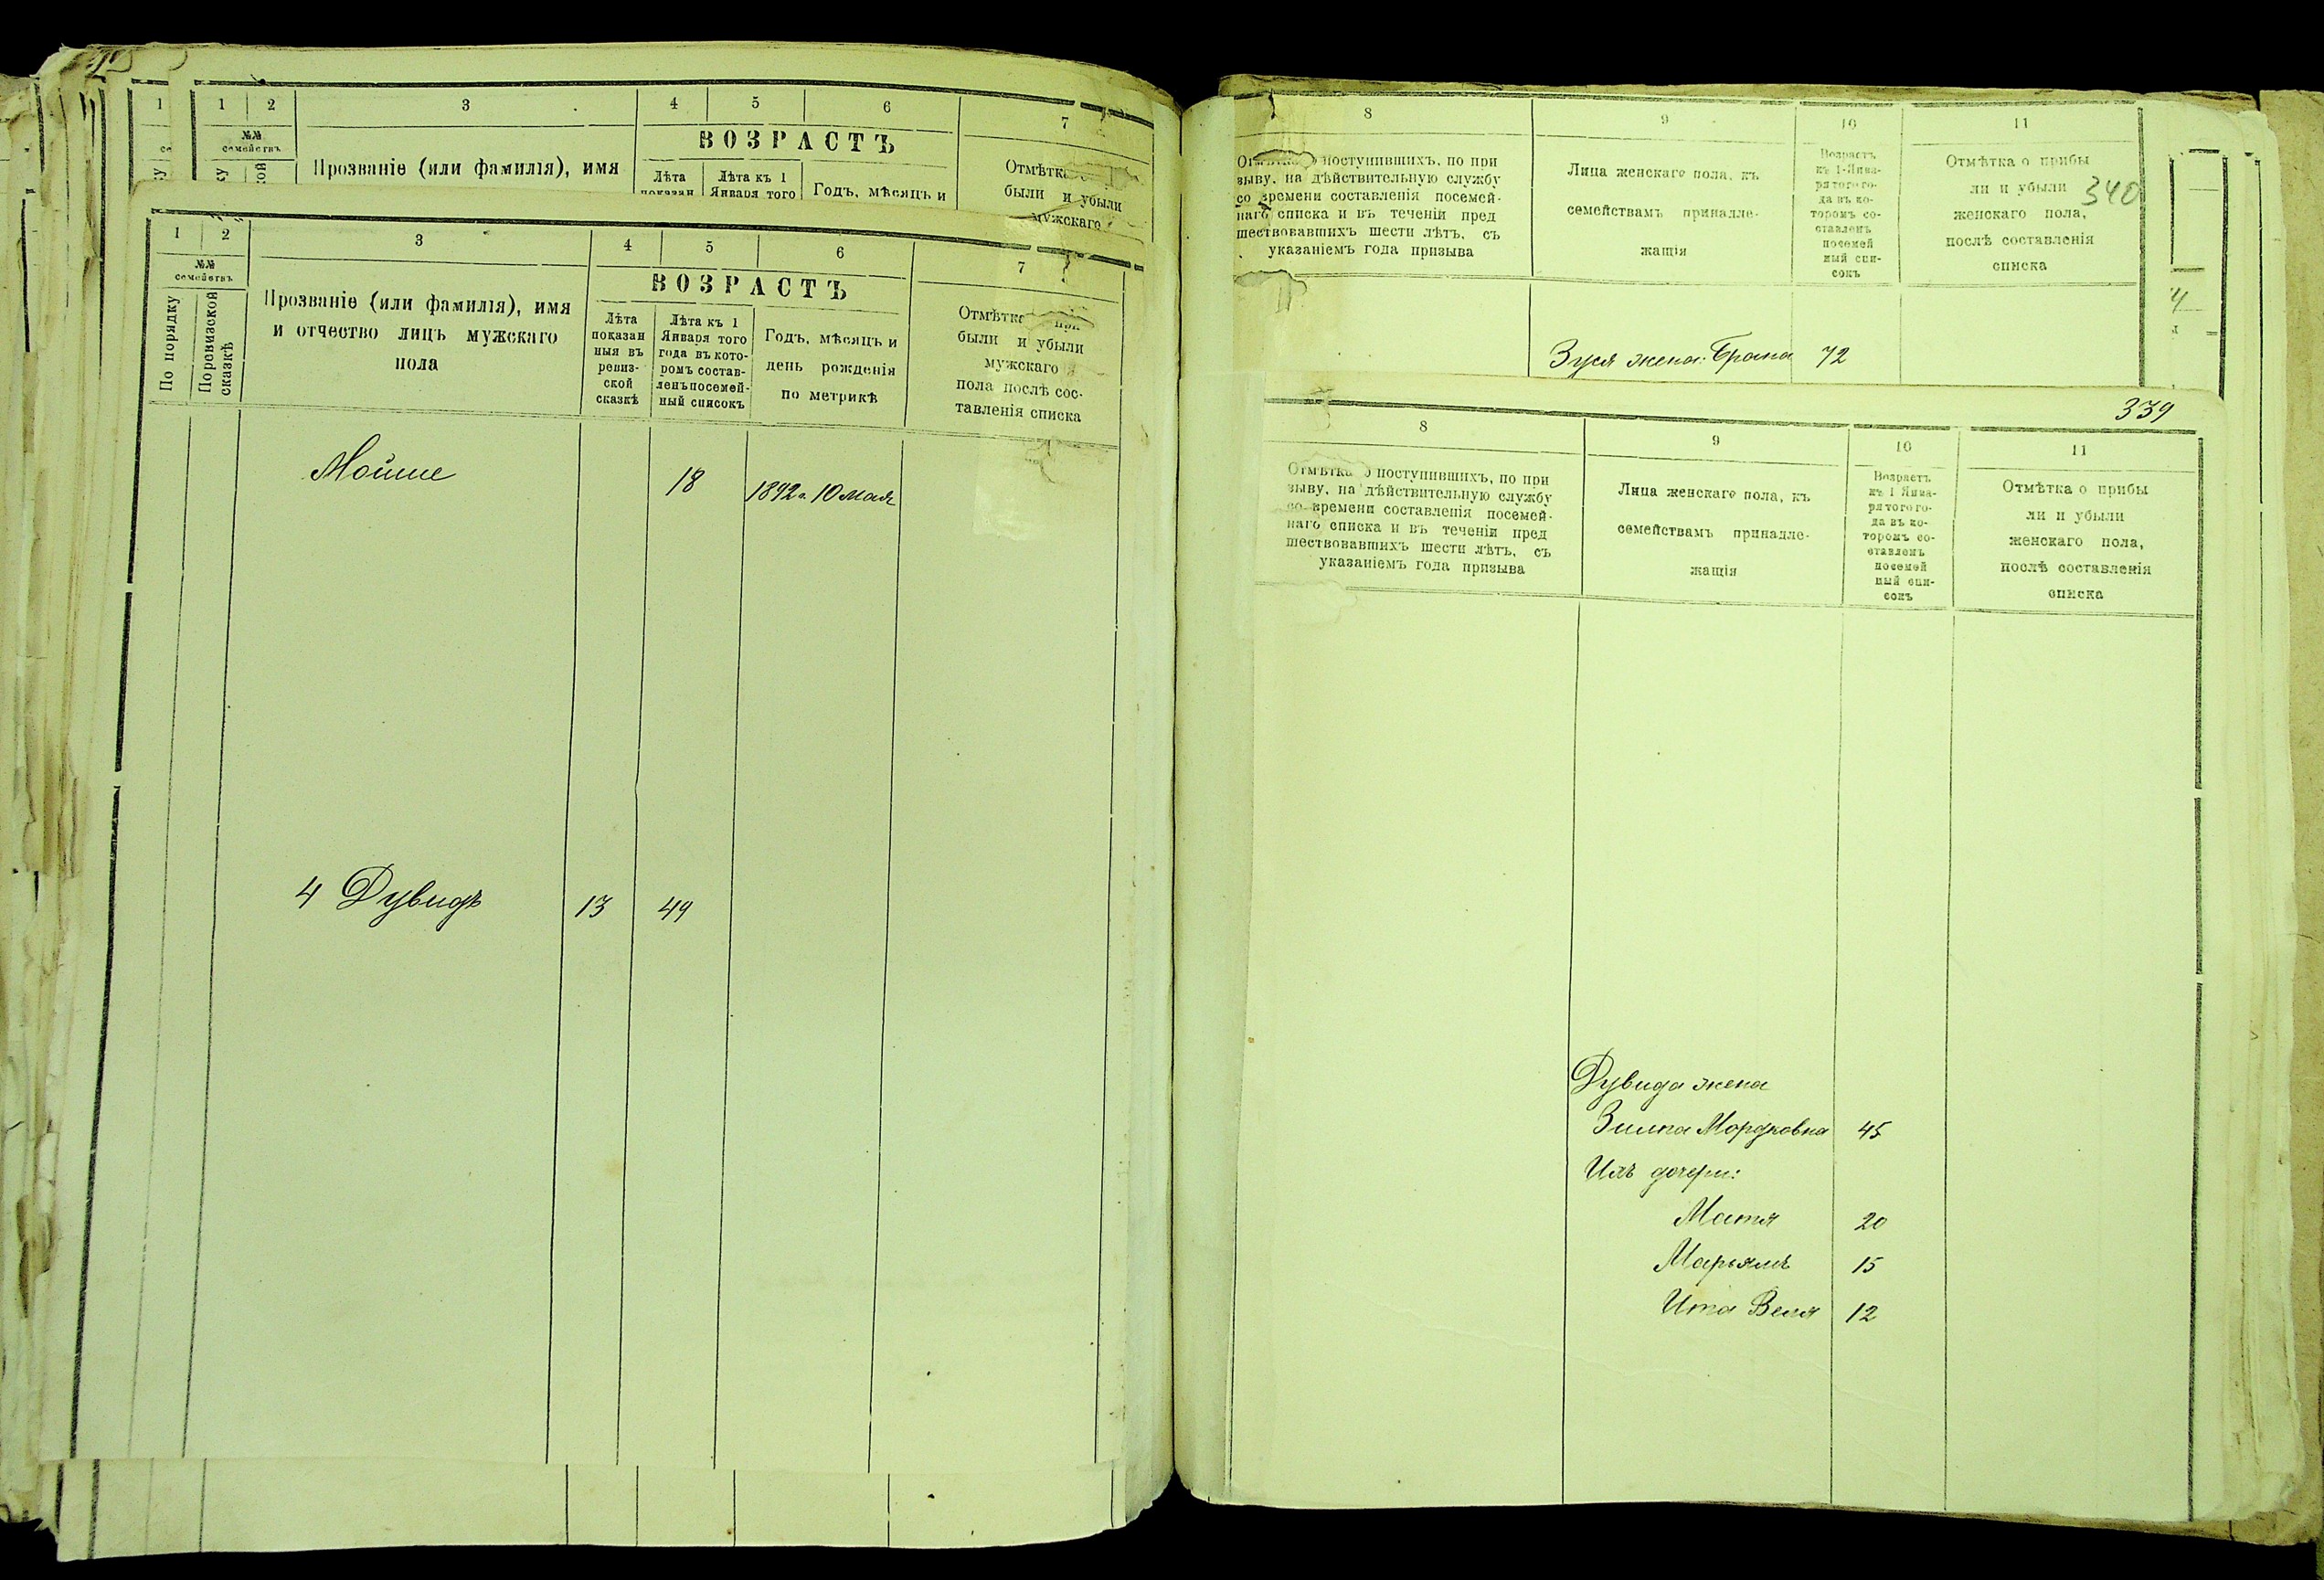 1 2 3 4 5 6 7
№№ семействъ
Прозваніе (или фамилія), имя
ВОЗРАСТЪ
Лѣта показан
Лѣта къ 1 Января того
Годъ, мѣсяцъ и
были и убыли
мужскаго
1 2 3 4 5 6 7
№№ семействъ
По порядку
По ревизской сказкѣ
Прозваніе (или фамилія), имя
и отчество лицъ мужскаго
пола
ВОЗРАСТЪ
Лѣта
показан
ныя въ
ревиз-
ской
сказкѣ
Лѣта къ 1
Января того
года въ кото-
ромъ состав-
ленъ посемей-
ный списокъ
Годъ, мѣсяцъ и
день рожденія
по метрикѣ
были и убыли
мужскаго
пола послѣ сос-
тавленія списка
Мойше 18 1892 г. 10 мая
4 Дувидъ 13 49
8 9 10 11
поступившихъ, по при
зыву, на дѣйствительную службу
со времени составленія посемей-
наго списка и въ теченіи пред
шествовавшихъ шести лѣтъ, съ
указаніемъ года призыва
Лица женскаго пола, къ
семействамъ принадле-
жащія
Возрастъ
къ 1-Янва-
ря того го-
да въ ко-
торомъ со-
ставленъ
посемей
ный спи-
сокъ
Отмѣтка о прибы
ли и убыли
женскаго пола,
послѣ составленія
списка
340
Зуся жена: Брана 72
339
8 9 10 11
Отмѣтка о поступившихъ, по при
зыву, на дѣйствительную службу
со времени составленія посемей-
наго списка и въ теченіи пред
шествовавшихъ шести лѣтъ, съ
указаніемъ года призыва
Лица женскаго пола, къ
семействамъ принадле-
жащія
Возрастъ
къ 1 Янва-
ря того го-
да въ ко-
торомъ со-
ставленъ
посемей
ный спи-
сокъ
Отмѣтка о прибы
ли и убыли
женскаго пола,
послѣ составленія
списка
Дувида жена
Злипа Мордковна 45
Ихъ дочери:
Матя 20
Марьямъ 15
Ита Веля 12